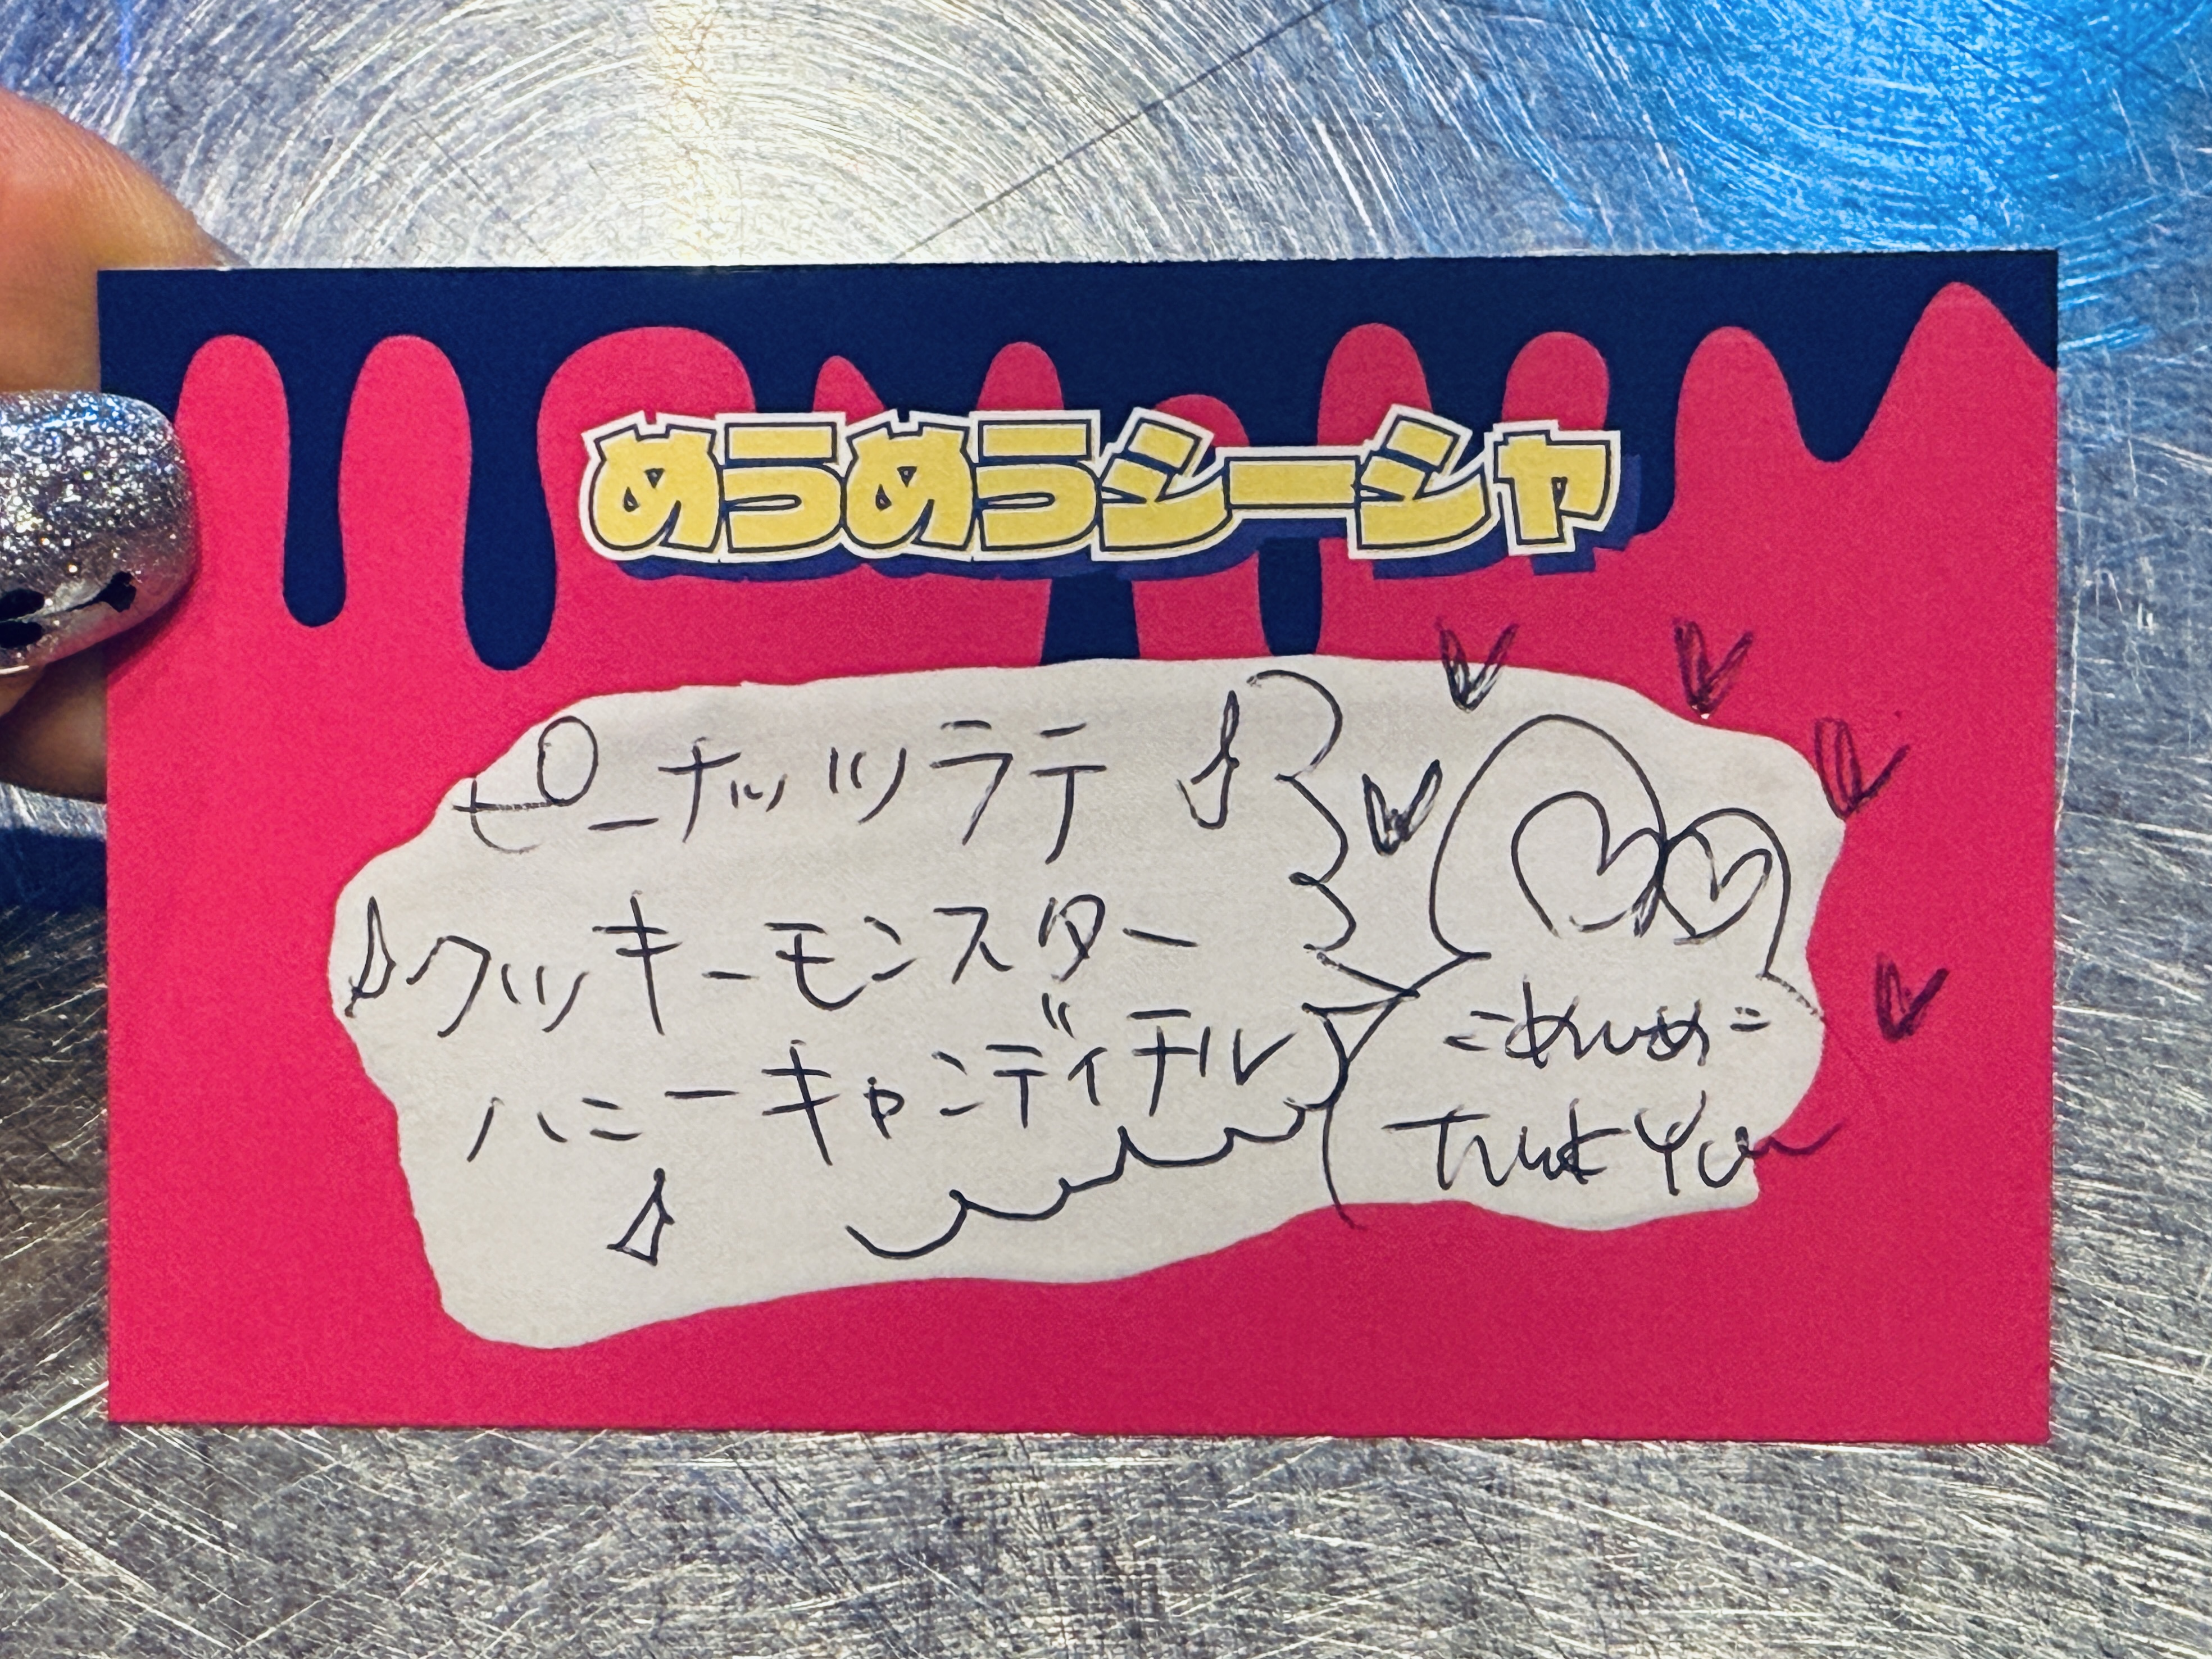 めうめうシーシャ
ピーナッツラテ
クッキーモンスター
ハニーキャンディチル
Thank You